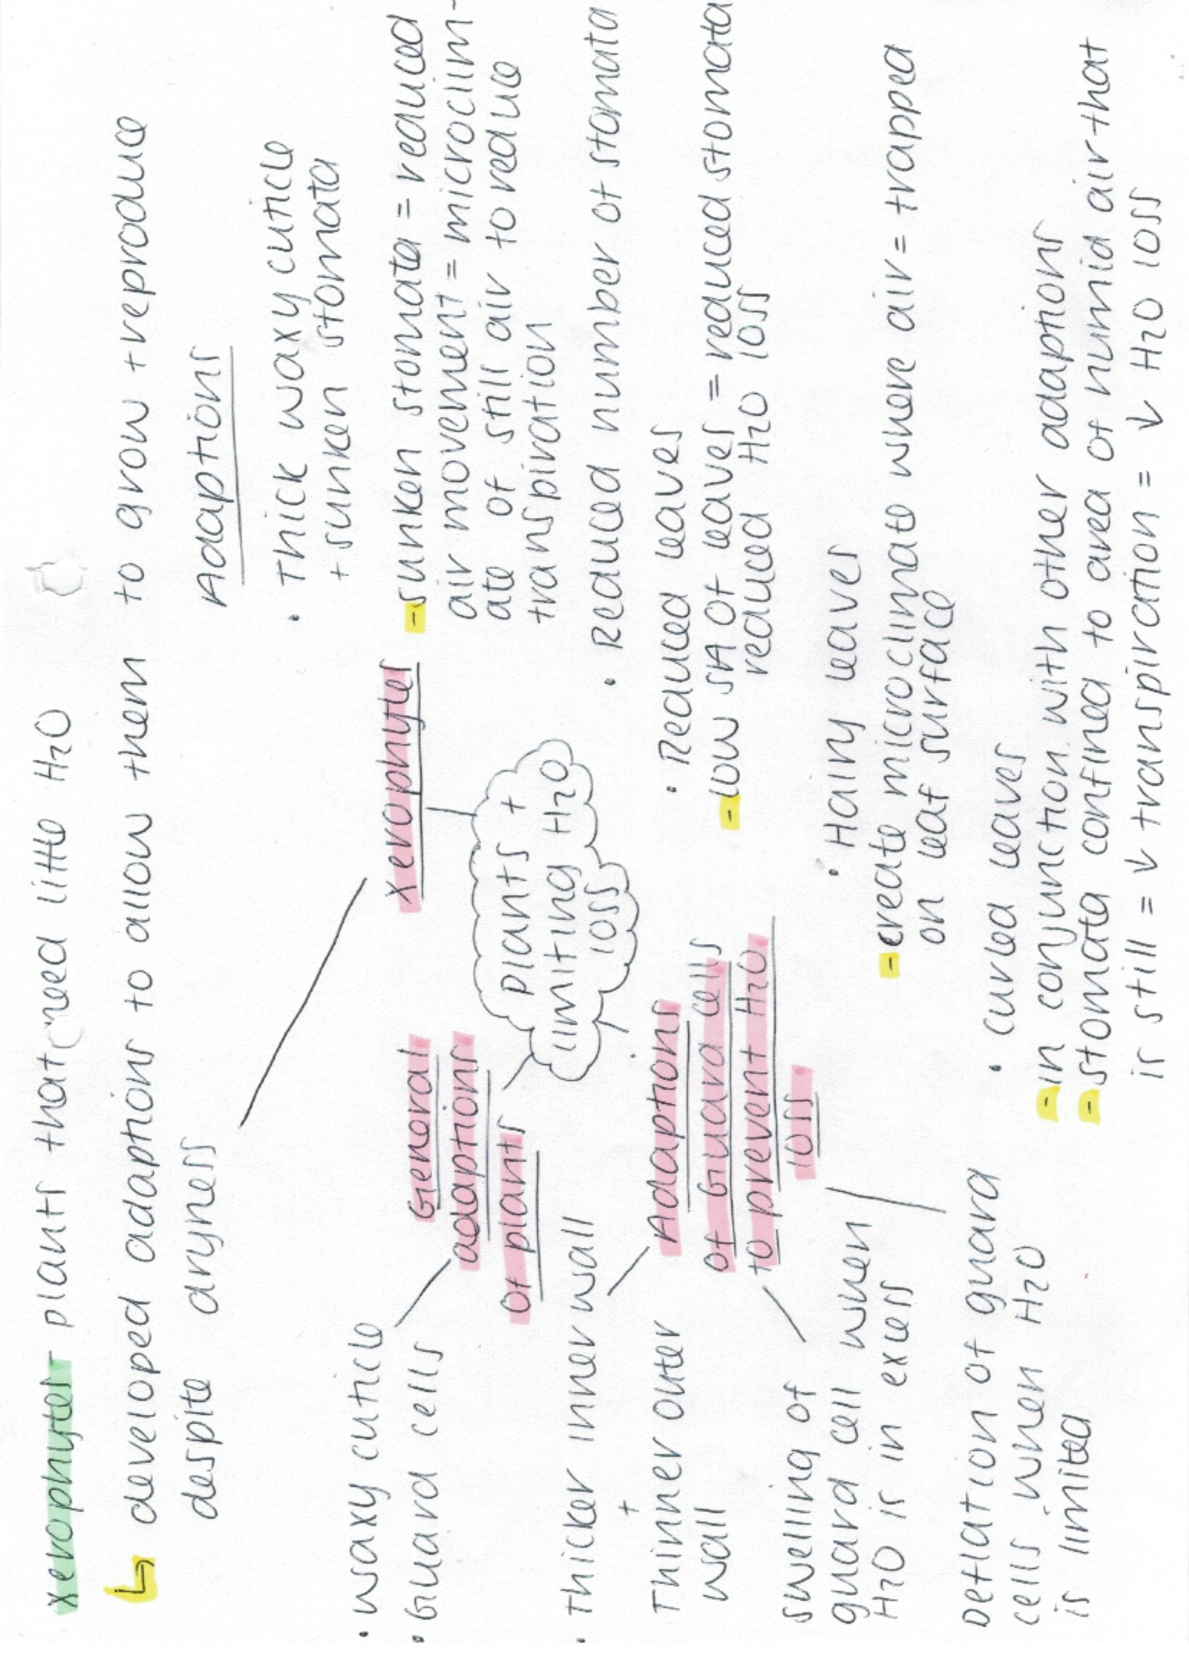 xerophytes - plants that need little H2O
↳ developed adaptions to allow them to grow + reproduce
despite dryness
Adaptions
• Thick waxy cuticle
+ sunken stomata
- sunken stomata = reduced
air movement = microclim-
ate of still air to reduce
transpiration
• Reduced number of stomata
• Reduced leaves
- low SA of leaves = reduced stomata
reduced H2O loss
• Hairy leaves
- create microclimate where air = trapped
on leaf surface
• curled leaves
- in conjunction with other adaptions
- stomata confined to area of humid air that
is still = ↓ transpiration = ↓ H2O loss
xerophytes
plants +
limiting H2O
loss
General
adaptions
of plants
• waxy cuticle
• Guard cells
Adaptions
of Guard cells
to prevent H2O
loss
• Thicker inner wall
+
Thinner outer
wall
swelling of
guard cell when
H2O is in exess
Deflation of guard
cells when H2O
is limited